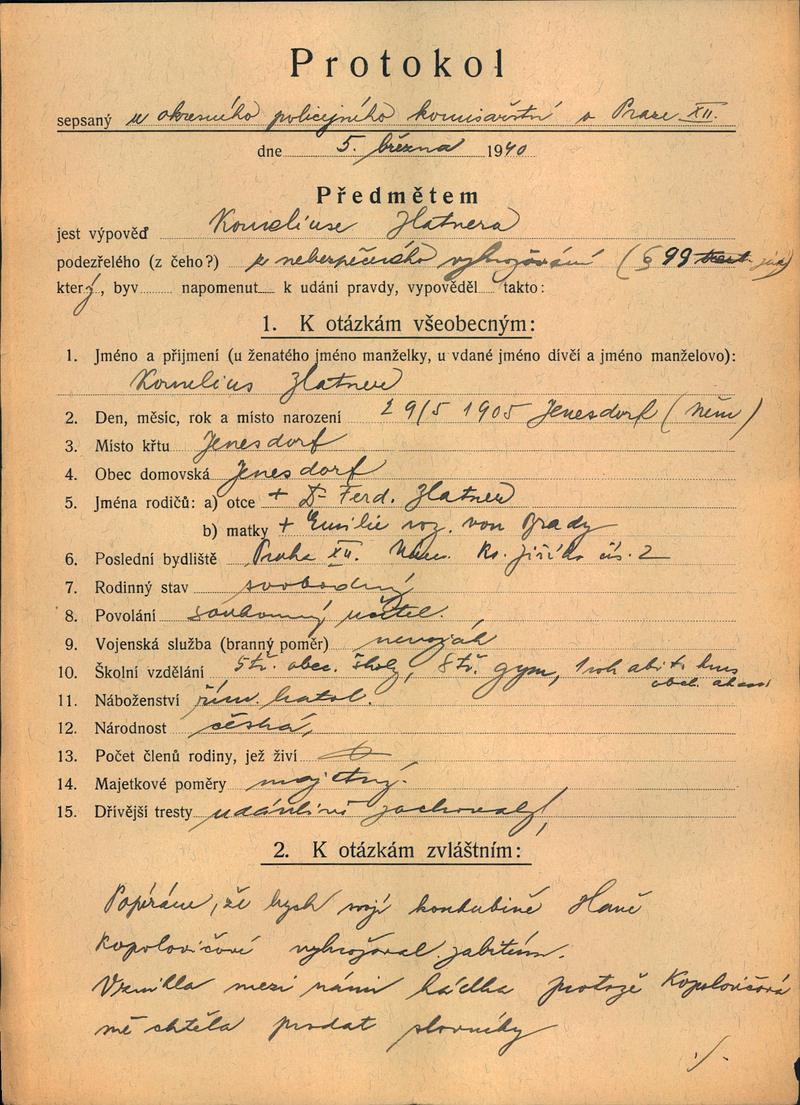 Protokol
sepsaný u okresního policejního komisařství v Praze XII.
dne 5. března 1940
Předmětem
jest výpověď Korneliuse Zlatnera
podezřelého (z čeho?) z nebezpečného vyhrožování (§ 99
který, byv napomenut k udání pravdy, vypověděl takto:
1. K otázkám všeobecným:
1. Jméno a příjmení (u ženatého jméno manželky, u vdané jméno dívčí a jméno manželovo):
Kornelius Zlatner
2. Den, měsíc, rok a místo narození 29/5 1905 Jenesdorf (Něm)
3. Místo křtu Jenesdorf
4. Obec domovská Jenesdorf
5. Jména rodičů: a) otce + Dr Ferd. Zlatner
b) matky + Emilie roz. von Grady
6. Poslední bydliště Praha XII. Nám. Kr. Jiřího čís. 2
7. Rodinný stav svobodný
8. Povolání soukromý učitel.
9. Vojenská služba (branný poměr) nevoják
10. Školní vzdělání 5 tř. obec. školy, 8 tř. gym, 1 rok abit. kurs obch. akad
11. Náboženství řím. katol.
12. Národnost česká,
13. Počet členů rodiny, jež živí
14. Majetkové poměry majetný.
15. Dřívější tresty udánlivě zachovalý,
2. K otázkám zvláštním:
Popírám, že bych svojí konkubině Haně
Kopolovičové vyhrožoval zabitím.
Vznikla mezi námi hádka protože Kopolovičová
mě chtěla prodat slovníky
./.